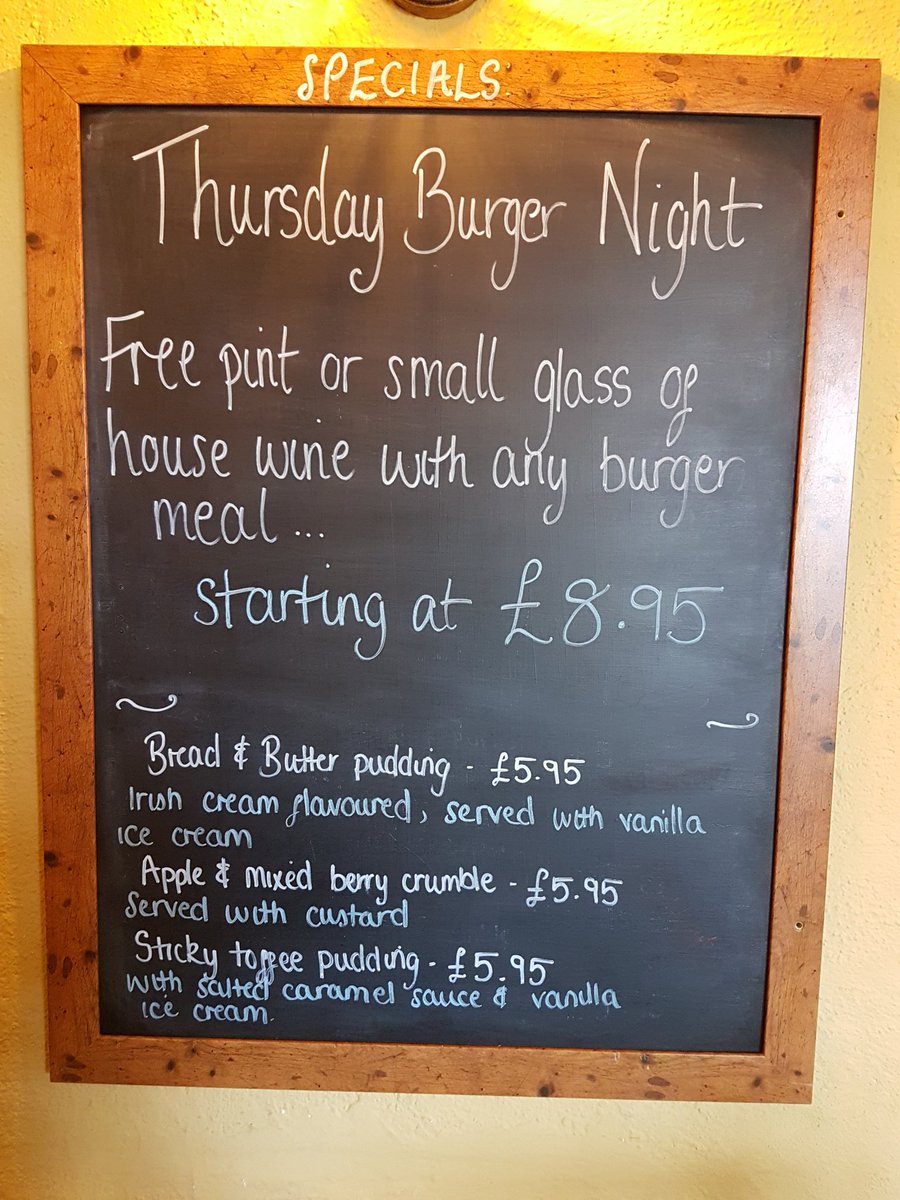 SPECIALS:
Thursday Burger Night
Free pint or small glass of
house wine with any burger
meal...
starting at £8.95
Bread & Butter pudding - £5.95
Irish cream flavoured, served with vanilla
ice cream
Apple & mixed berry crumble - £5.95
Served with custard
Sticky toffee pudding - £5.95
with salted caramel sauce & vanilla
ice cream.